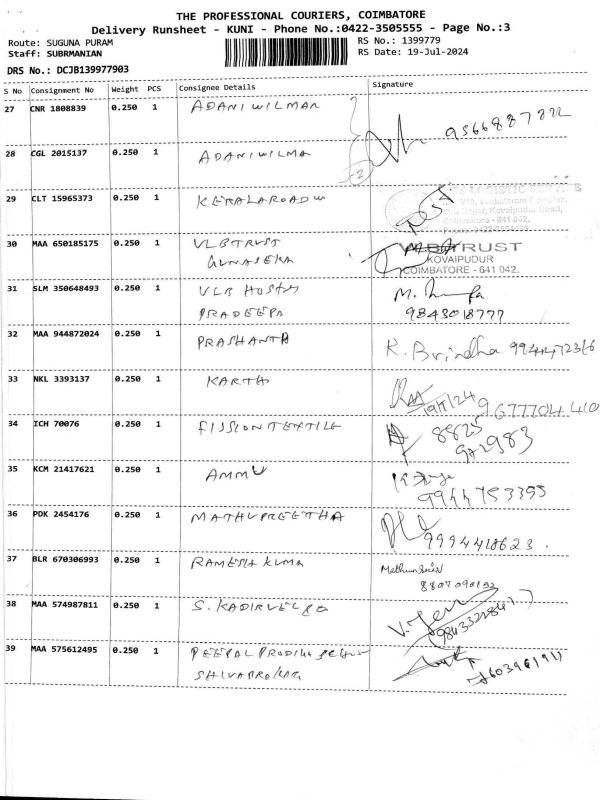 THE PROFESSIONAL COURIERS, COIMBATORE
Delivery Runsheet - KUNI - Phone No.:0422-3505555 - Page No.:3
Route: SUGUNA PURAM
RS No.: 1399779
Staff: SUBRMANIAN
RS Date: 19-Jul-2024
DRS No.: DCJB139977903
S No Consignment No Weight PCS Consignee Details Signature
27 CNR 1808839 0.250 1 ADANIWILMAR 9566887822
28 CGL 2015137 0.250 1 ADANIWILMA
29 CLT 15965373 0.250 1 KERALAROADW
30 MAA 650185175 0.250 1 VLBTRUST
GUNASEKA
V.L.B.TRUST
KOVAIPUDUR
COIMBATORE - 641 042.
31 SLM 350648493 0.250 1 VLB HOSTS M.
PRADEEPA 9843018777
32 MAA 944872024 0.250 1 PRASHANTH K. Brindha 9944472366
33 NKL 3393137 0.250 1 KARTH 19/7/24 9677704410
34 ICH 70076 0.250 1 FISSIONTEXTILE 8825
972983
35 KCM 21417621 0.250 1 AMMU
9944753395
36 PDK 2454176 0.250 1 MATHUPREETHA
9994418623.
37 BLR 670306993 0.250 1 RAMESH KUMA
38 MAA 574987811 0.250 1 S. KADIRVELGO
39 MAA 575612495 0.250 1 PEEPAL PRODHA
7603961911